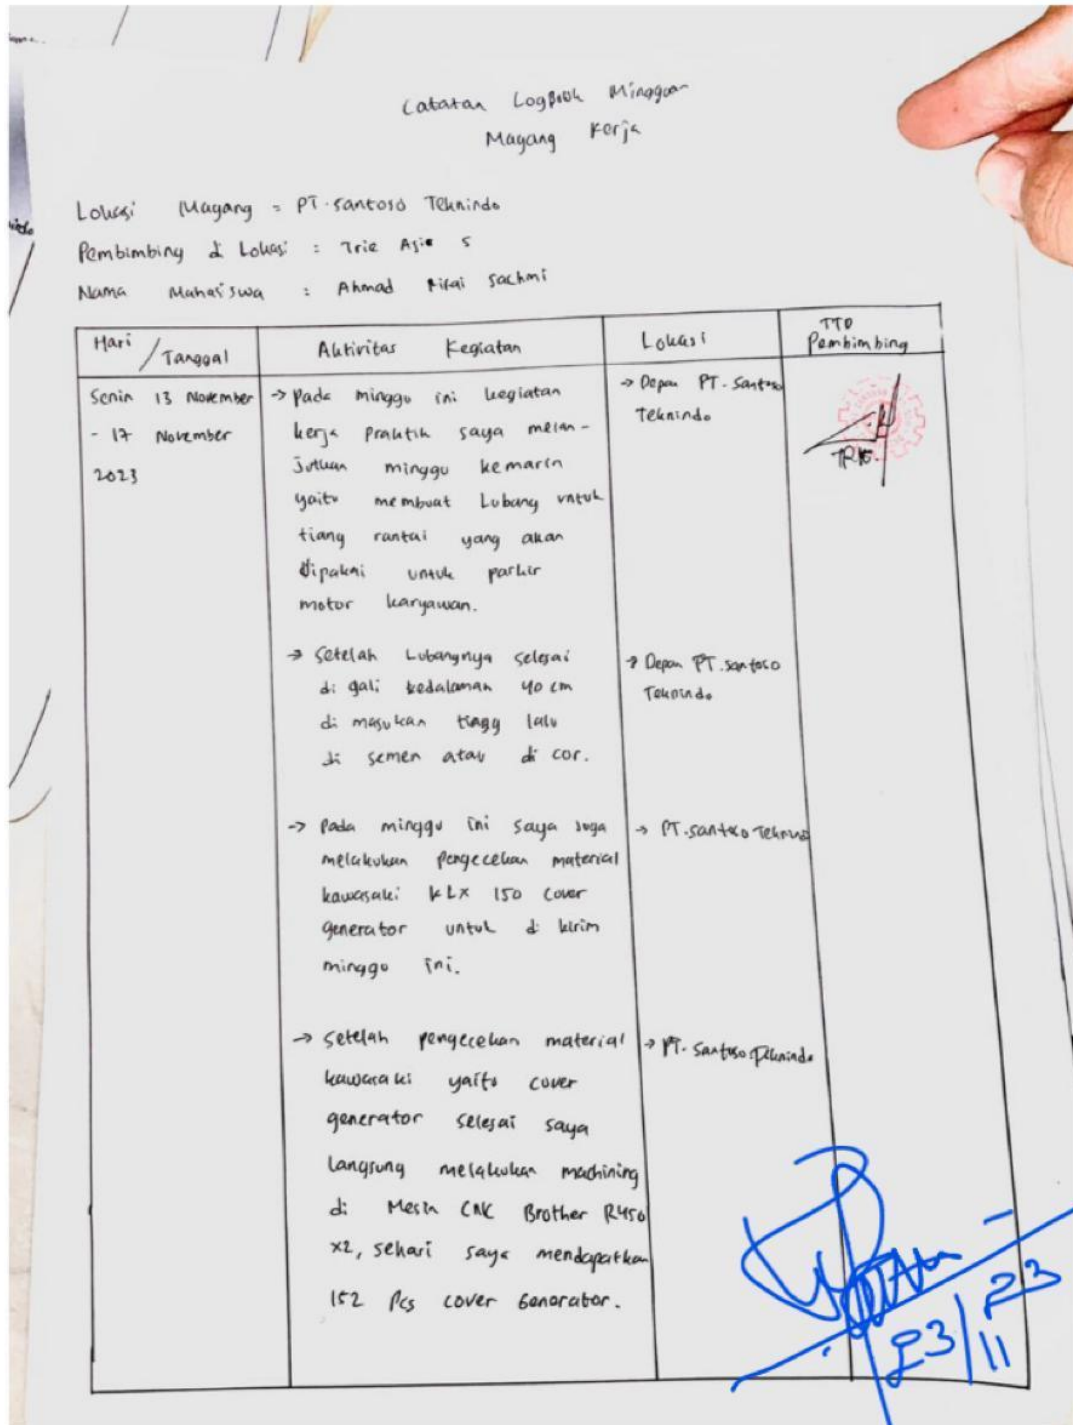 Catatan LogBook Mingguan
Magang Kerja
Lokasi Magang = PT. Santoso Teknindo
Pembimbing di Lokasi : Trie Asie S
Nama Mahasiswa : Ahmad Rifai Sachmi
Hari / Tanggal
Aktivitas Kegiatan
Lokasi
TTD
Pembimbing
Senin 13 November
- 17 November
2023
→ Pada minggu ini kegiatan
kerja praktik saya melan-
jutkan minggu kemarin
yaitu membuat Lubang untuk
tiang rantai yang akan
dipakai untuk parkir
motor karyawan.
→ Depan PT. Santoso
Teknindo
TRIE
→ Setelah Lubangnya selesai
di gali kedalaman 40 cm
di masukan tiang lalu
di semen atau di cor.
→ Depan PT. Santoso
Teknindo
→ Pada minggu ini saya juga
melakukan pengecekan material
kawasaki KLX 150 cover
generator untuk di kirim
minggu ini.
→ PT. Santoso Teknindo
→ Setelah pengecekan material
kawasaki yaitu cover
generator selesai saya
Langsung melakukan machining
di Mesin CNC Brother R450
x2, sehari saya mendapatkan
152 Pcs cover Generator.
→ PT. Santoso Teknindo
23/11 23